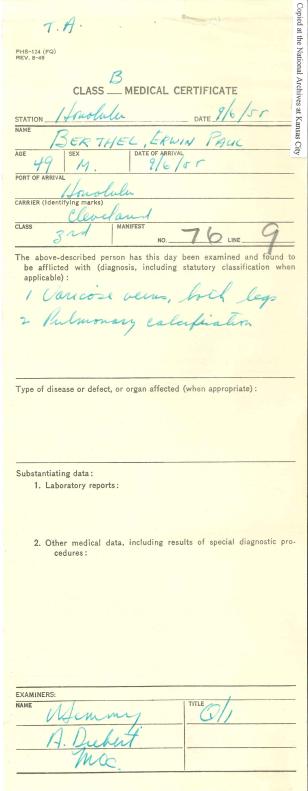 T. A.
PHS-124 (FQ)
REV. 8-49
CLASS B MEDICAL CERTIFICATE
STATION Honolulu DATE 9/6/55
NAME
BERTHEL, ERWIN PAUL
AGE SEX DATE OF ARRIVAL
49 M. 9/6/55
PORT OF ARRIVAL
Honolulu
CARRIER (Identifying marks)
Cleveland
CLASS MANIFEST
3rd NO. 76 LINE 9
The above-described person has this day been examined and found to
be afflicted with (diagnosis, including statutory classification when
applicable):
1 Varicose veins, both legs
2 Pulmonary calcification
Type of disease or defect, or organ affected (when appropriate):
Substantiating data:
1. Laboratory reports:
2. Other medical data, including results of special diagnostic pro-
cedures:
EXAMINERS:
NAME TITLE
A.
Copied at the National Archives at Kansas City